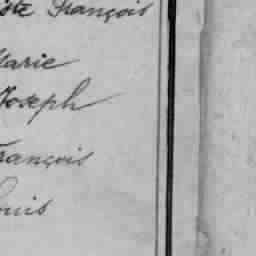 iste François
Marie
Joseph
François
Louis